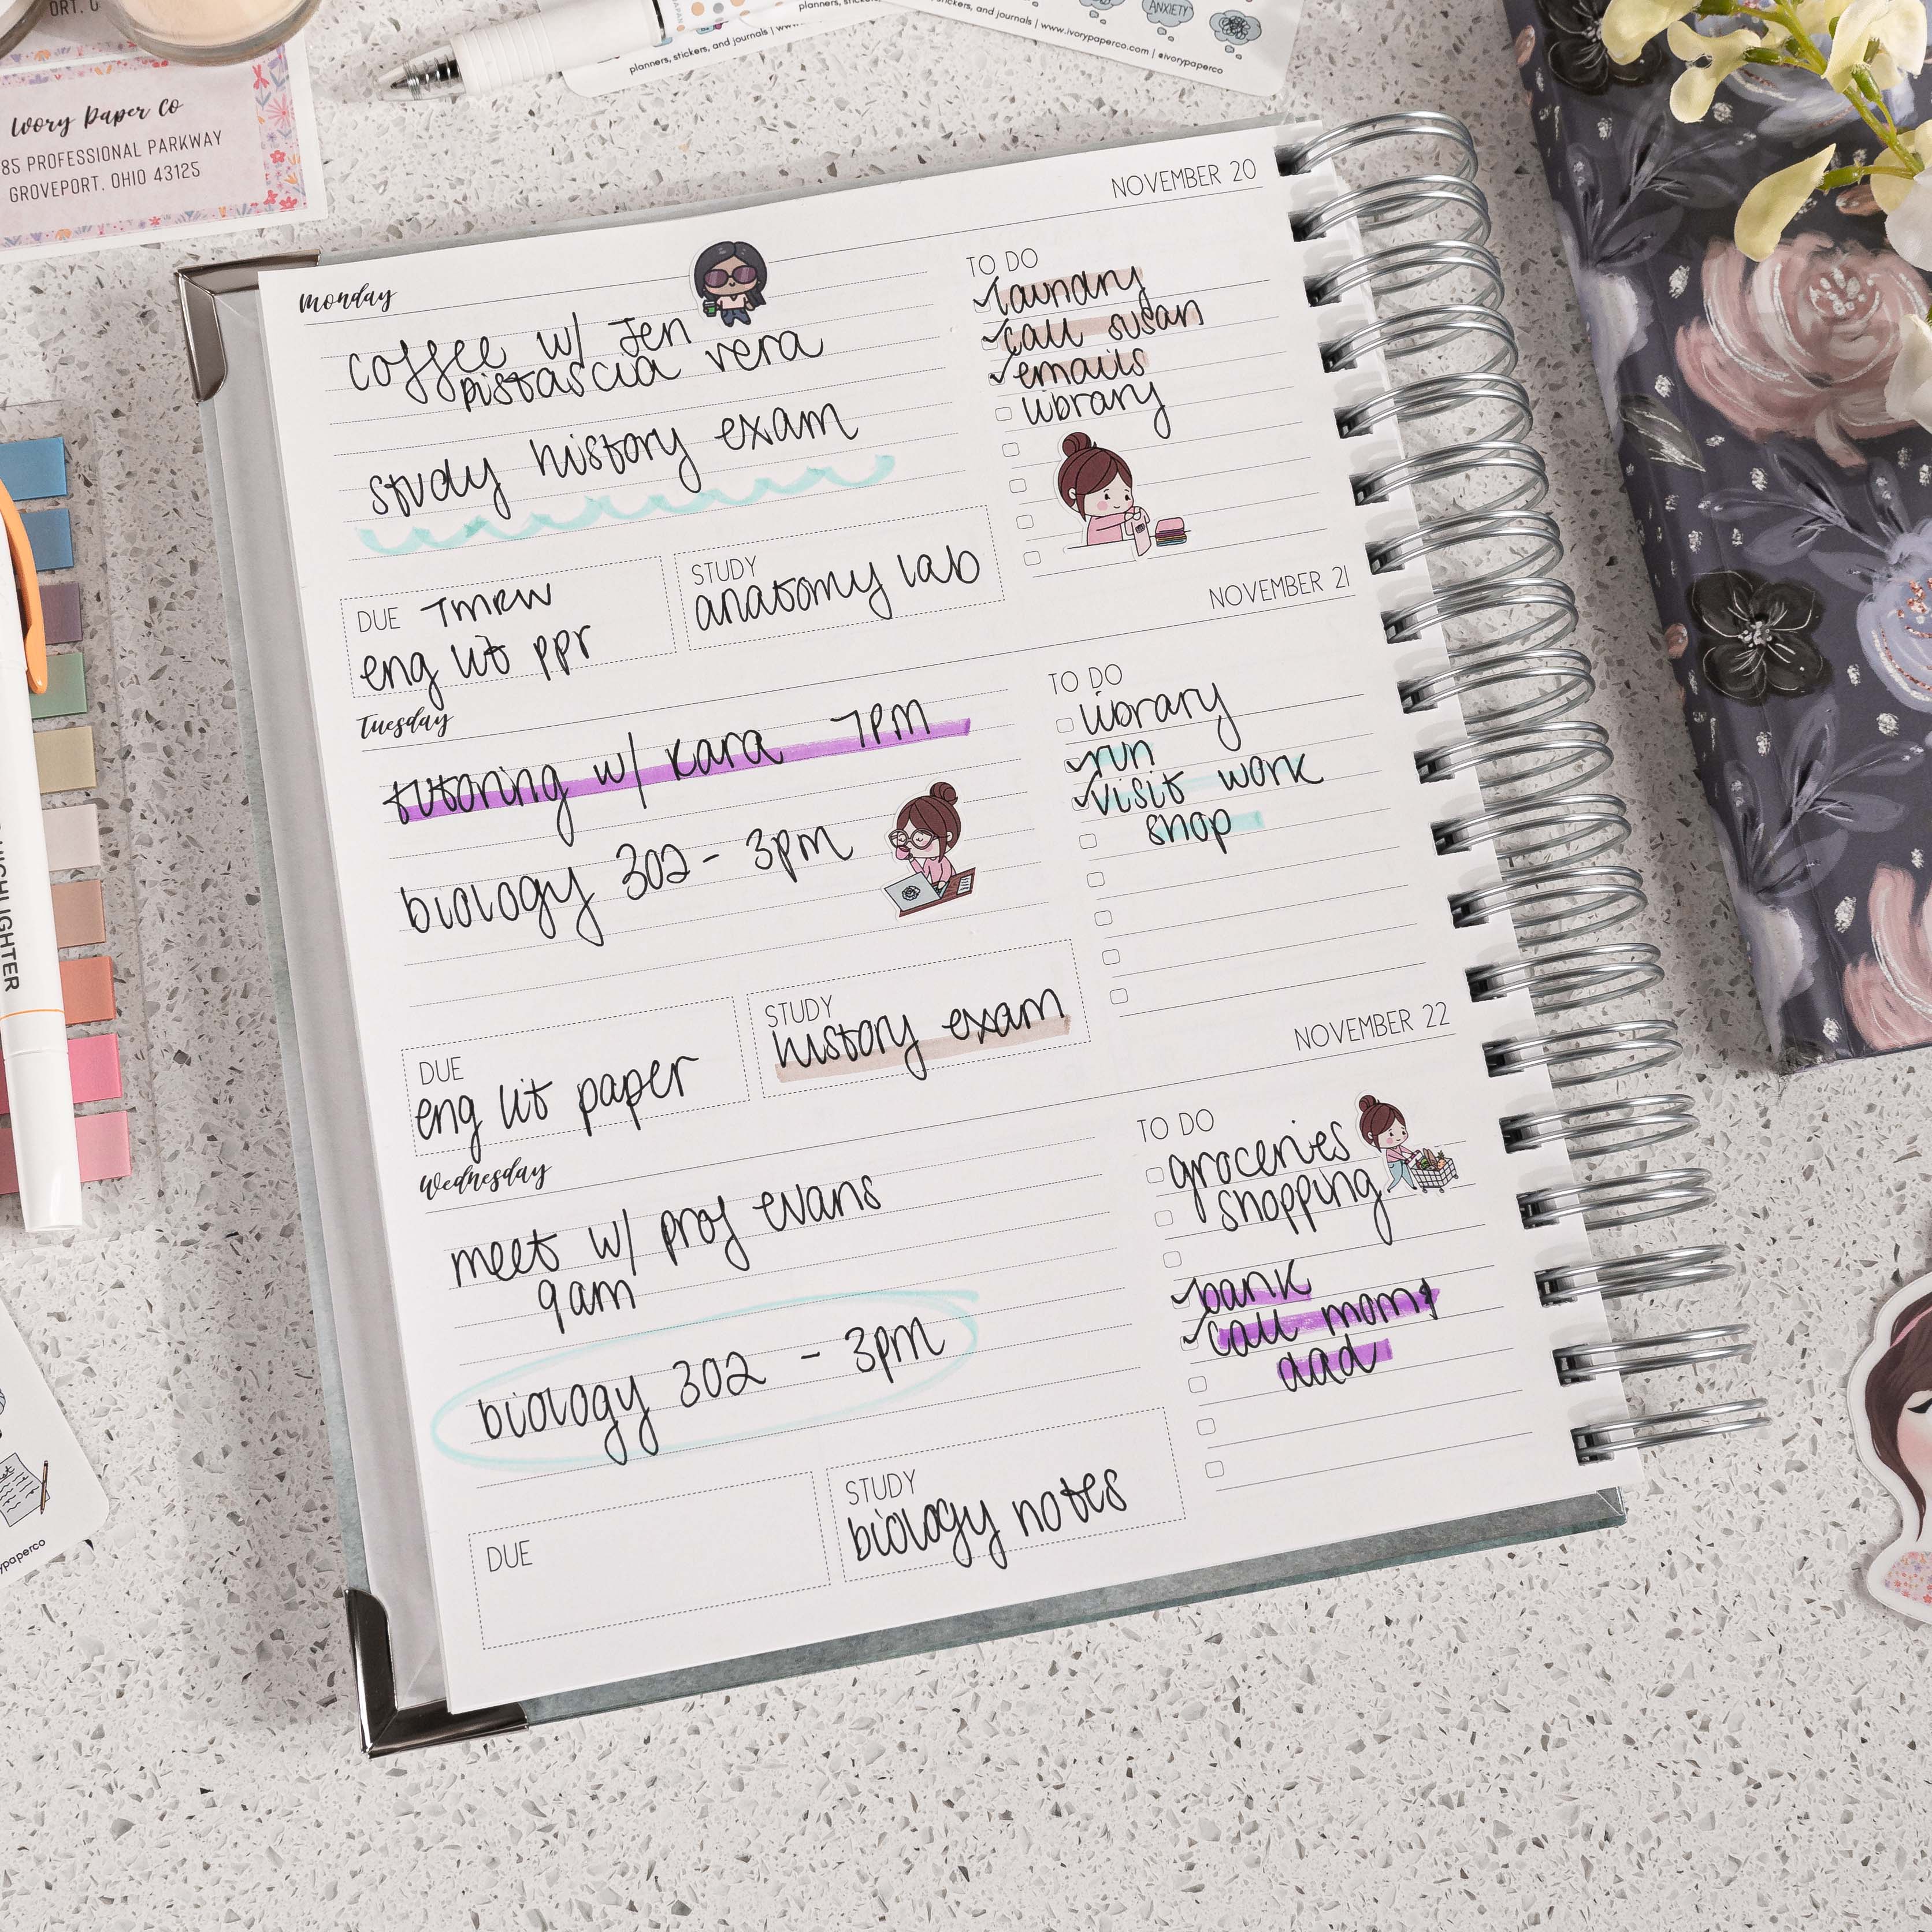 ORT, O
Ivory Paper Co
85 PROFESSIONAL PARKWAY
GROVEPORT, OHIO 43125
planners, stickers, and journals | www.
planners,
stickers, and journals | www.ivorypaperco.com | @ivorypaperco
ANXIETY
NOVEMBER 20
monday
coffee w/ Jen
pistascia vera
study history exam
DUE TMRW
eng lit ppr
STUDY
anatomy lab
TO DO
laundry
call susan
emails
library
NOVEMBER 21
Tuesday
tutoring w/ kara 7PM
biology 302 - 3pm
DUE
eng lit paper
STUDY
history exam
TO DO
library
run
visit work
shop
NOVEMBER 22
Wednesday
meet w/ prof evans
9am
biology 302 - 3pm
DUE
STUDY
biology notes
TO DO
groceries
shopping
bank
call mom &
dad
HIGHLIGHTER
ypaperco